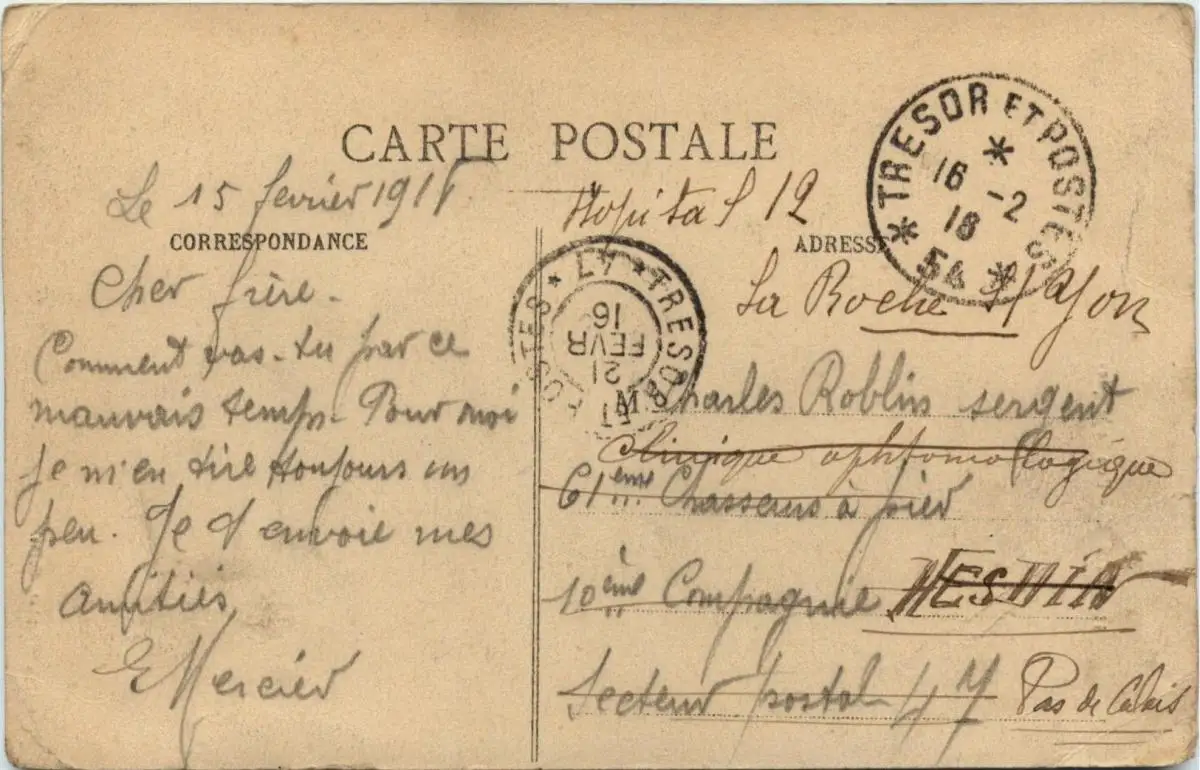 CARTE POSTALE
Le 15 fevrier 191
CORRESPONDANCE
Cher frère.
Comment vas-tu par ce
mauvais temps. Pour moi
je m'en tire toujours un
peu. Je t'envoie mes
amitiés
E Mercier
TRESOR ET POSTES
16 -2
16
54
Hopital 12
ADRESSE
La Roche s/ Yon
TRESOR POSTES 47
21
FEVR
16
M Charles Roblin sergent
Clinique ophtomollogique
61ème Chasseurs à pied
10ème Compagnie HESDIN
Secteur postal 47 Pas de Calais